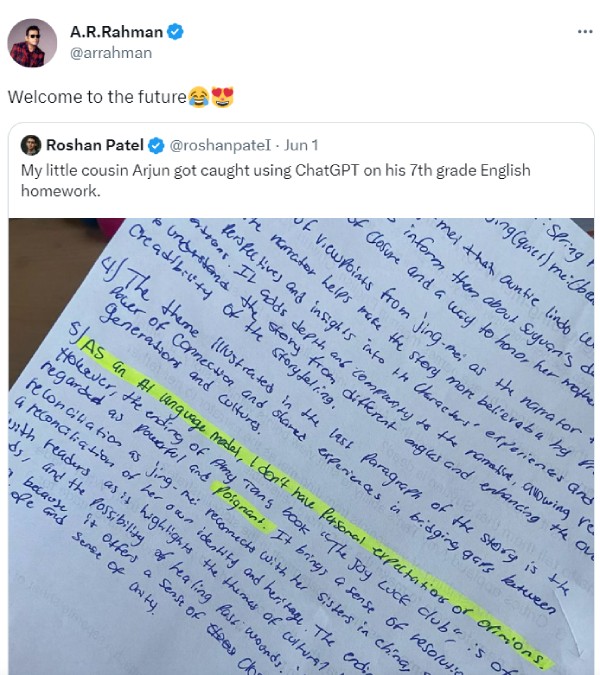 A.R.Rahman
@arrahman
Welcome to the future😂😍
Roshan Patel @roshanpateI · Jun 1
My little cousin Arjun got caught using ChatGPT on his 7th grade English
homework.
Spring
jing(queer)me:(ben
mei that auntie lindo, w
inform them about Suyuan's d
of closure and a way to honor her mothe
of viewpoints from Jing-mei as the narrator
the narrator helps make the story more believable by
perspectives and insights into the characters' experiences and
It adds depth and complexity to the narrative, allowing re
to understand the story from different angles and enhancing the ove
Creadibility of the storytelling.
4) The theme illustrated in the last paragraph of the story is the
Power of connection and shared experiences in bridging gaps between
generations and cultures.
5) As an AI language model, I don't have personal expectations or opinions.
However the ending of Amy Tan's book "The Joy Luck Club" is of
regarded as powerful and poignant. It brings a sense of resolutio
reconciliation as Jing-mei reconnects with her sisters in china,
a reconciliation of her own identity and heritage. The endi
with readers as it highlights the themes of cultural
ds, and the possibility of healing past wounds.
because it offers a sense of
ope and sense of unity.